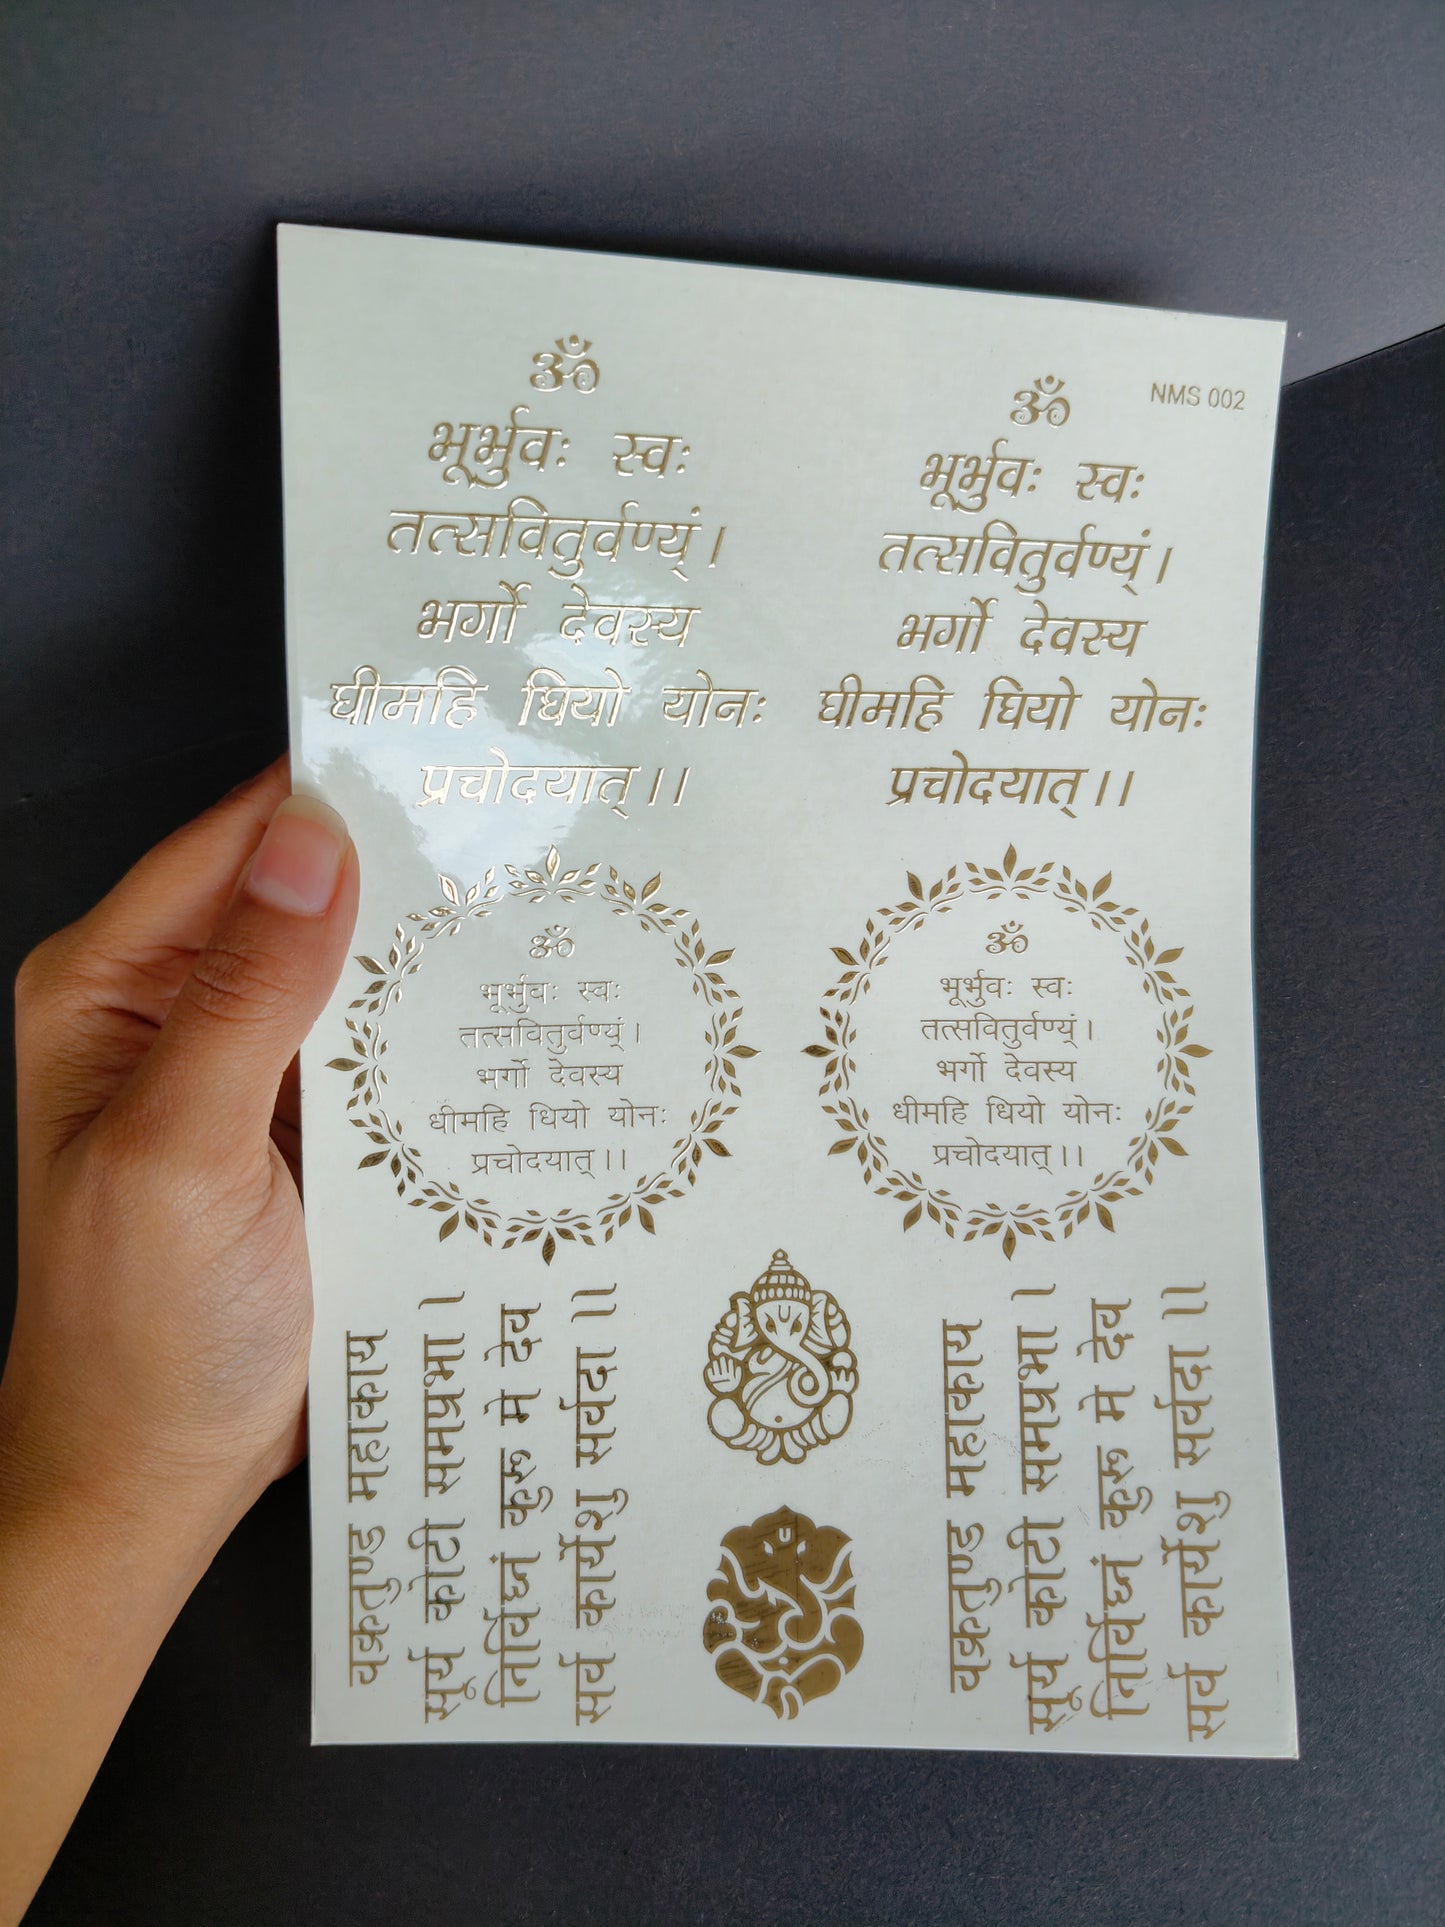 ॐ
भूर्भुवः स्वः
तत्सवितुर्वण्यं्।
भर्गो देवस्य
घीमहि घियो योनः
प्रचोदयात्।।
NMS 002
ॐ
भूर्भुवः स्वः
तत्सवितुर्वण्यं्।
भर्गो देवस्य
घीमहि घियो योनः
प्रचोदयात्।।
ॐ
भूर्भुवः स्वः
तत्सवितुर्वण्यं्।
भर्गो देवस्य
धीमहि धियो योनः
प्रचोदयात्।।
ॐ
भूर्भुवः स्वः
तत्सवितुर्वण्यं्।
भर्गो देवस्य
धीमहि धियो योनः
प्रचोदयात्।।
वक्रतुण्ड महाकाय
सूर्य कोटी समप्रभा।
निर्विघ्नं कुरू मे देव
सर्व कार्येशु सर्वदा।।
वक्रतुण्ड महाकाय
सूर्य कोटी समप्रभा।
निर्विघ्नं कुरू मे देव
सर्व कार्येशु सर्वदा।।